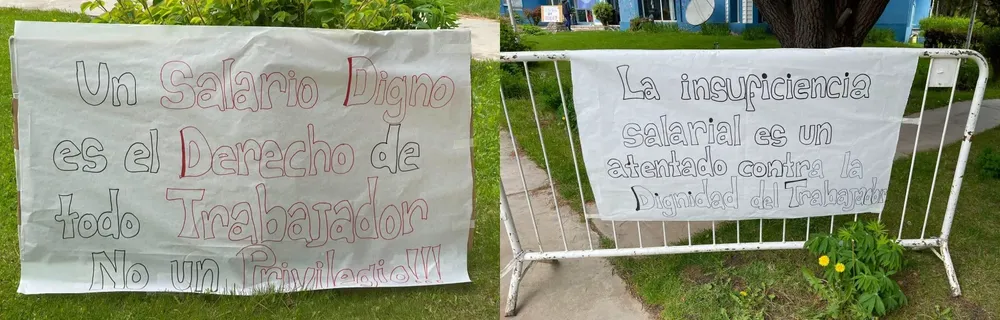 Un Salario Digno
es el Derecho de
todo Trabajador
No un Privilegio!!!
La insuficiencia
salarial es un
atentado contra la
Dignidad del Trabajador